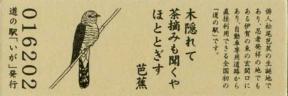 俳人松尾芭蕉の生誕地で
あり、忍者発祥の地でも
ある伊賀の東の玄関口に
あり、自動車専用道路から
直接利用できる全国初の
「道の駅」です。
木隠れて
茶摘みも聞くや
ほととぎす
芭蕉
016202
「道の駅」いが」発行